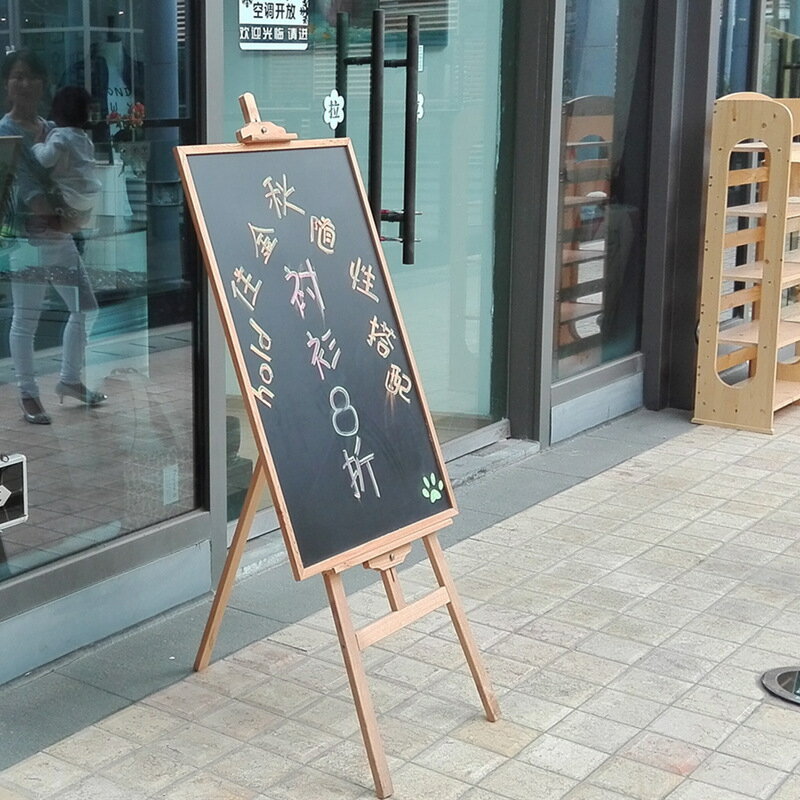 空调开放
欢迎光临 请进
拉
hold住金秋随性搭配
衬衫8折